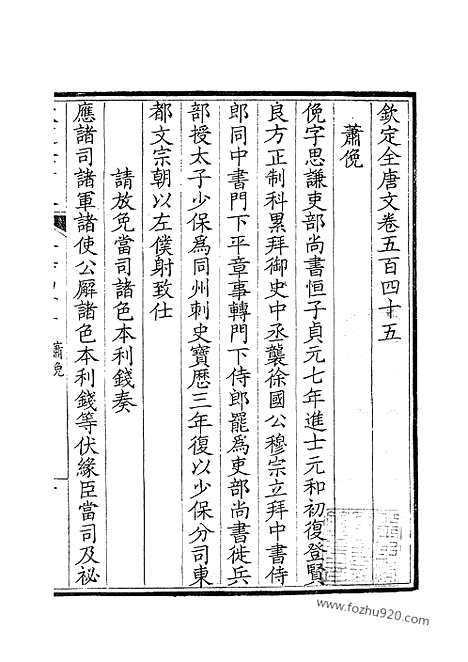 欽定全唐文卷五百四十五
蕭俛
俛字思謙吏部尚書恒子貞元七年進士元和初復登賢
良方正制科累拜御史中丞襲徐國公穆宗立拜中書侍
郎同中書門下平章事轉門下侍郎罷為吏部尚書徙兵
部授太子少保為同州刺史寶歷三年復以少保分司東
都文宗朝以左僕射致仕
請放免當司諸色本利錢奏
應諸司諸軍諸使公廨諸色本利錢等伏緣臣當司及祕
蕭俛
www.fozhu920.com